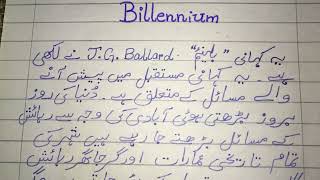 Billennium
یہ کہانی "بلینیم" J.G. Ballard نے لکھی
ہے۔ یہ کہانی مستقبل میں پیش آنے
والے مسائل کے متعلق ہے۔ دُنیا کی روز
بروز بڑھتی ہوئی آبادی کی وجہ سے رہائش
کے مسائل بڑھتے جا رہے ہیں شہر کی
تمام تاریخی عمارات اور گرجا گھر رہائش